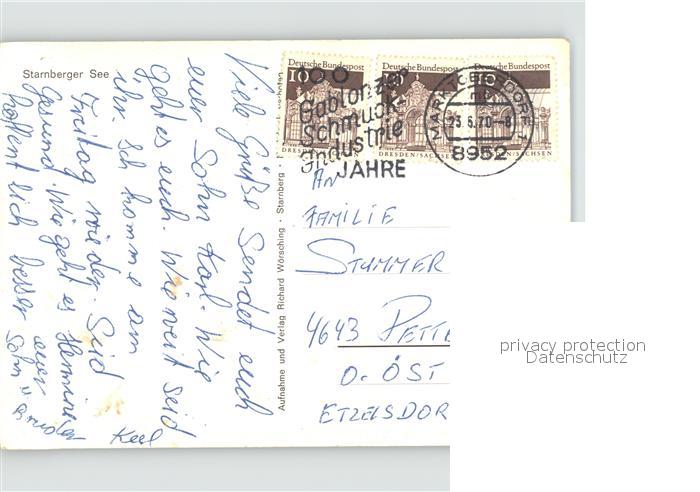 Starnberger See
Viele Grüße sendet euch
euer Sohn Karl. Wie
geht es euch. Wie weit seid
ihr. Ich komme am
Freitag wieder. Seid
Gesund. Wie geht es
hoffentlich besser
euer
Sohn u Bruder
Karl
Aufnahme und Verlag Richard Wörsching · Starnberg
Deutsche Bundespost
10
DRESDEN/SACHSEN
Deutsche Bundespost
DRESDEN/SACHSEN
Deutsche Bundespost
DRESDEN/SACHSEN
100
Gablonzer
Schmuck
Industrie
JAHRE
MARKTOBERDORF 1
23.6.70-8
8952
AN
FAMILIE
STUMMER
4643 PETTE
O. ÖST
ETZELSDOR
privacy protection
Datenschutz